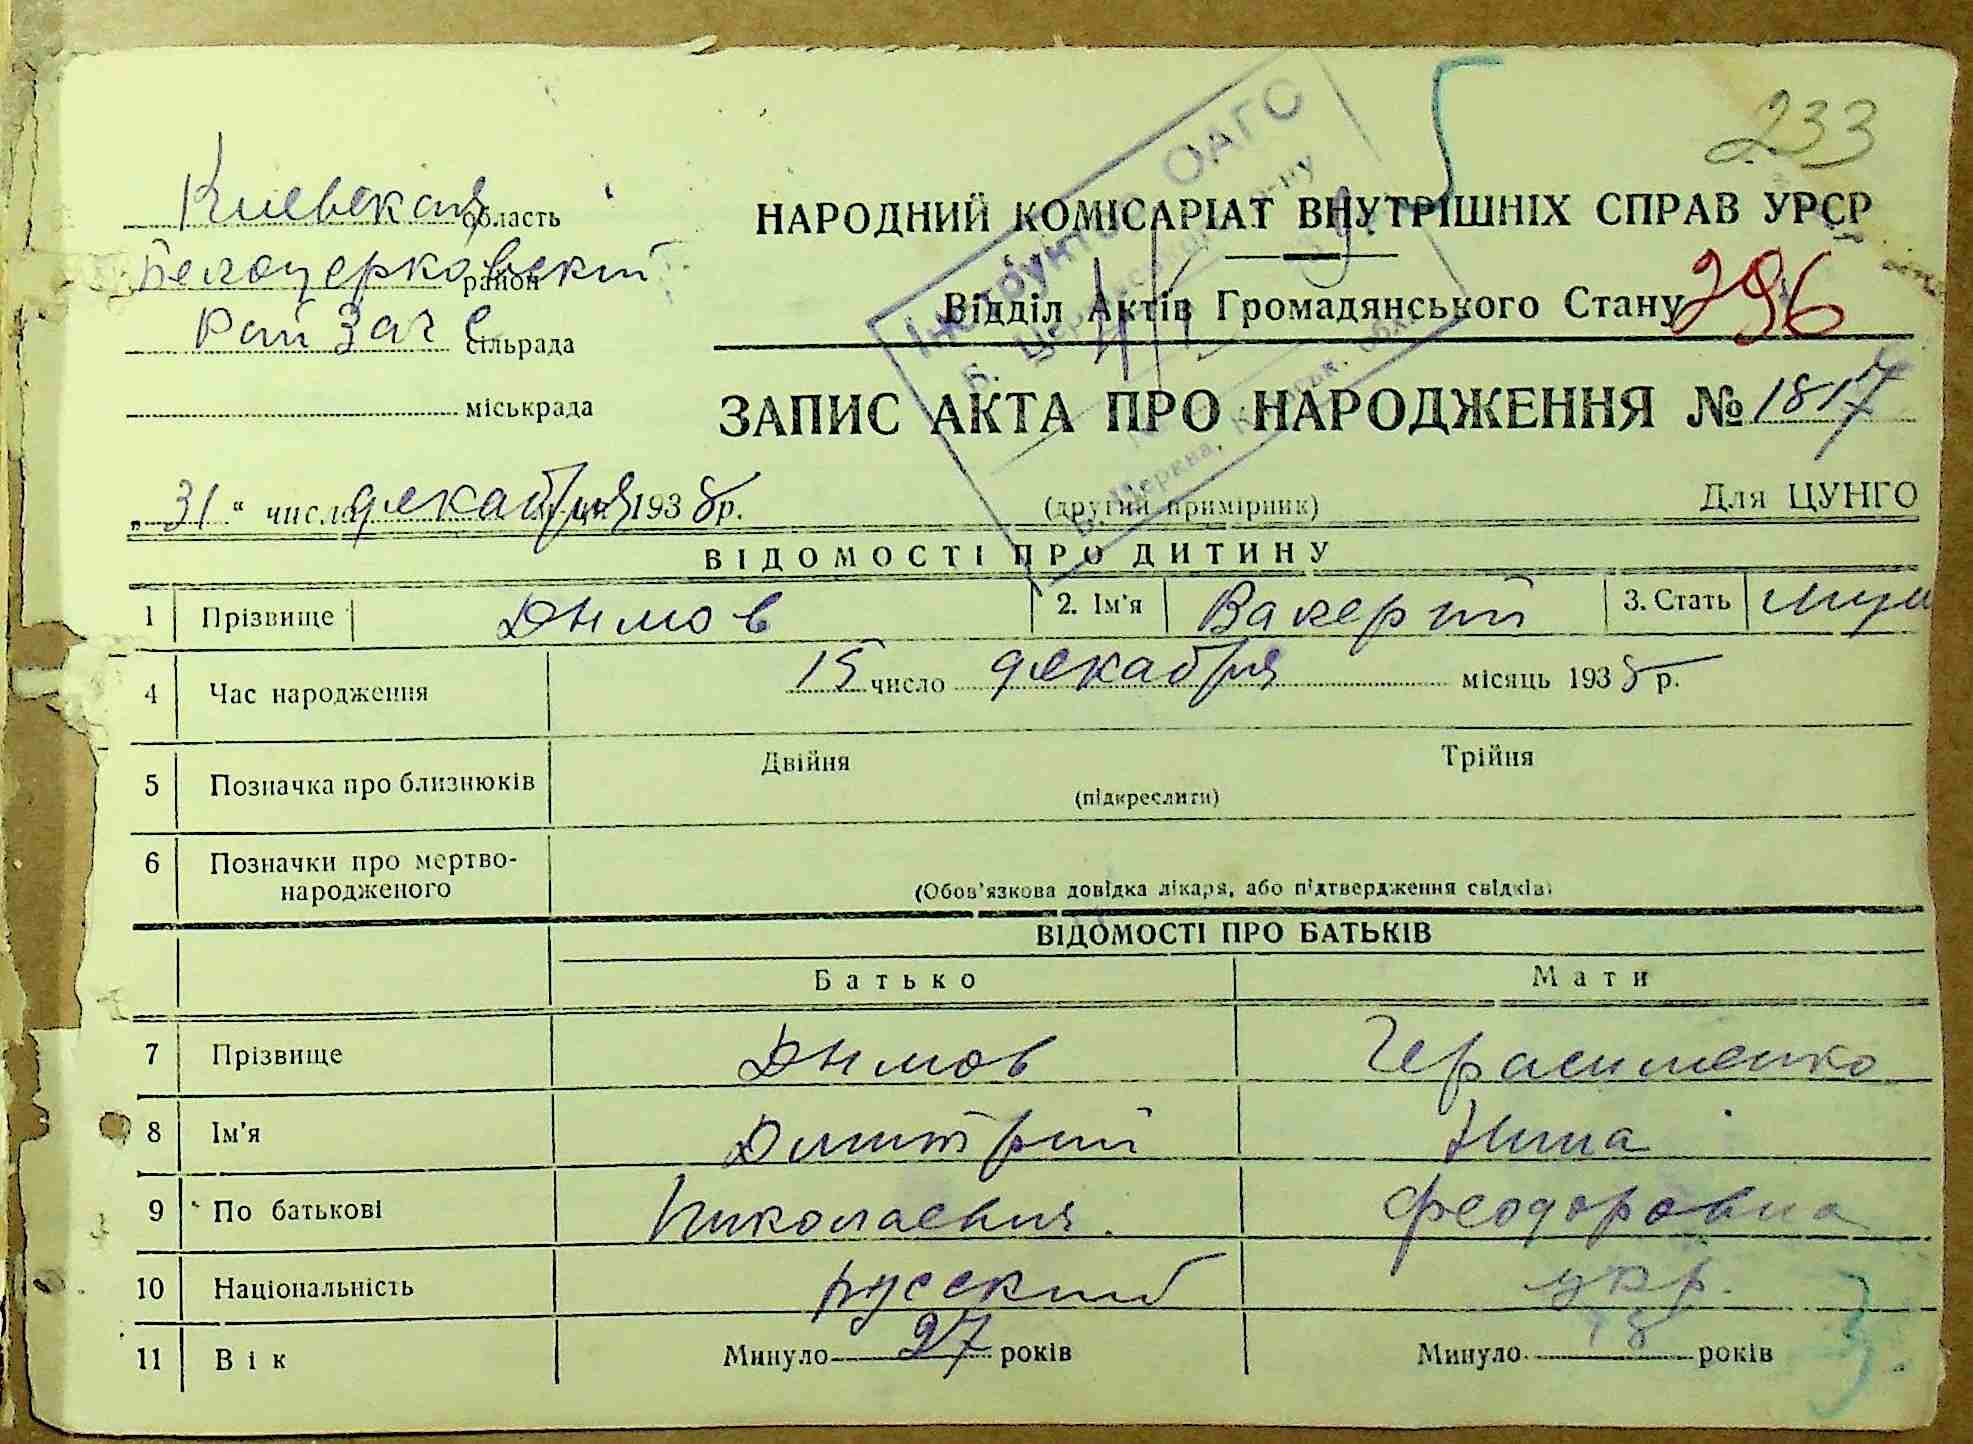 233
Киевская область
НАРОДНИЙ КОМІСАРІАТ ВНУТРІШНІХ СПРАВ УРСР
Белоцерковский район
Відділ Актів Громадянського Стану 296
Рай Загс сільрада
міськрада
ЗАПИС АКТА ПРО НАРОДЖЕННЯ № 1817
Інспектура ОАГС
„31“ числа декабря 1938 р.
(другий примірник)
Для ЦУНГО
ВІДОМОСТІ ПРО ДИТИНУ
1 Прізвище Дымов 2. Ім'я Валерий 3. Стать муж
4 Час народження 15 число декабря місяць 1938 р.
5 Позначка про близнюків Двійня Трійня
(підкреслити)
6 Позначки про мертво-
народженого
(Обов'язкова довідка лікаря, або підтвердження свідків)
ВІДОМОСТІ ПРО БАТЬКІВ
Батько Мати
7 Прізвище Дымов Герасименко
8 Ім'я Дмитрий Нина
9 По батькові Николаевич Феодоровна
10 Національність русский укр.
11 Вік Минуло 27 років Минуло років